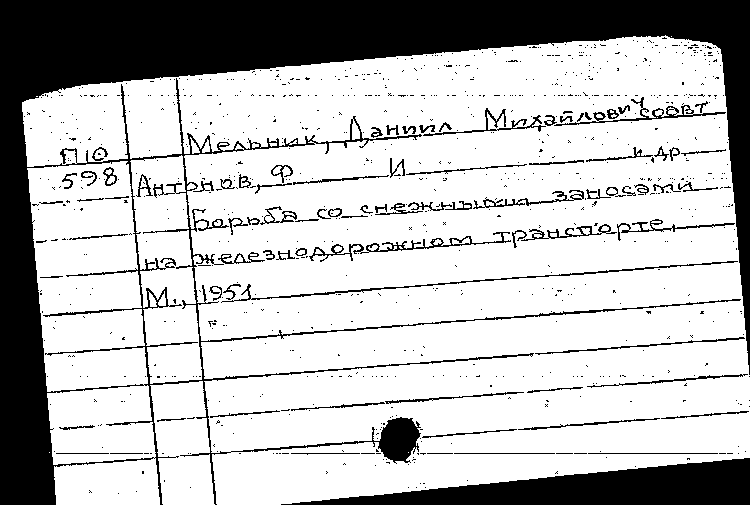 Мельник, Даниил Михайлович соавт
П10
598 Антонов, Ф И и др.
Борьба со снежными заносами
на железнодорожном транспорте.
М., 1951